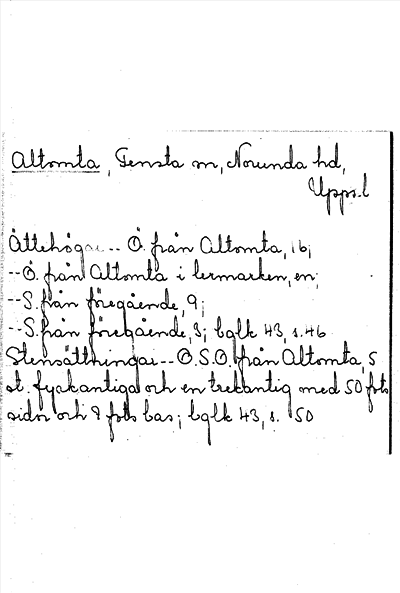 Altomta, Tensta sn, Norunda hd,
Upps.l
Ättehögar -- Ö. från Altomta, 16;
-- Ö. från Altomta i lermarken, en;
-- S. från föregående, 9;
-- S. från föregående, 3; bglk 43, s. 46
Stensättningar -- O.S.O. från Altomta, 5
st. fyrkantiga och en trekantig med 50 fots
sidor och 8 fots bas; bglk 43, s. 50